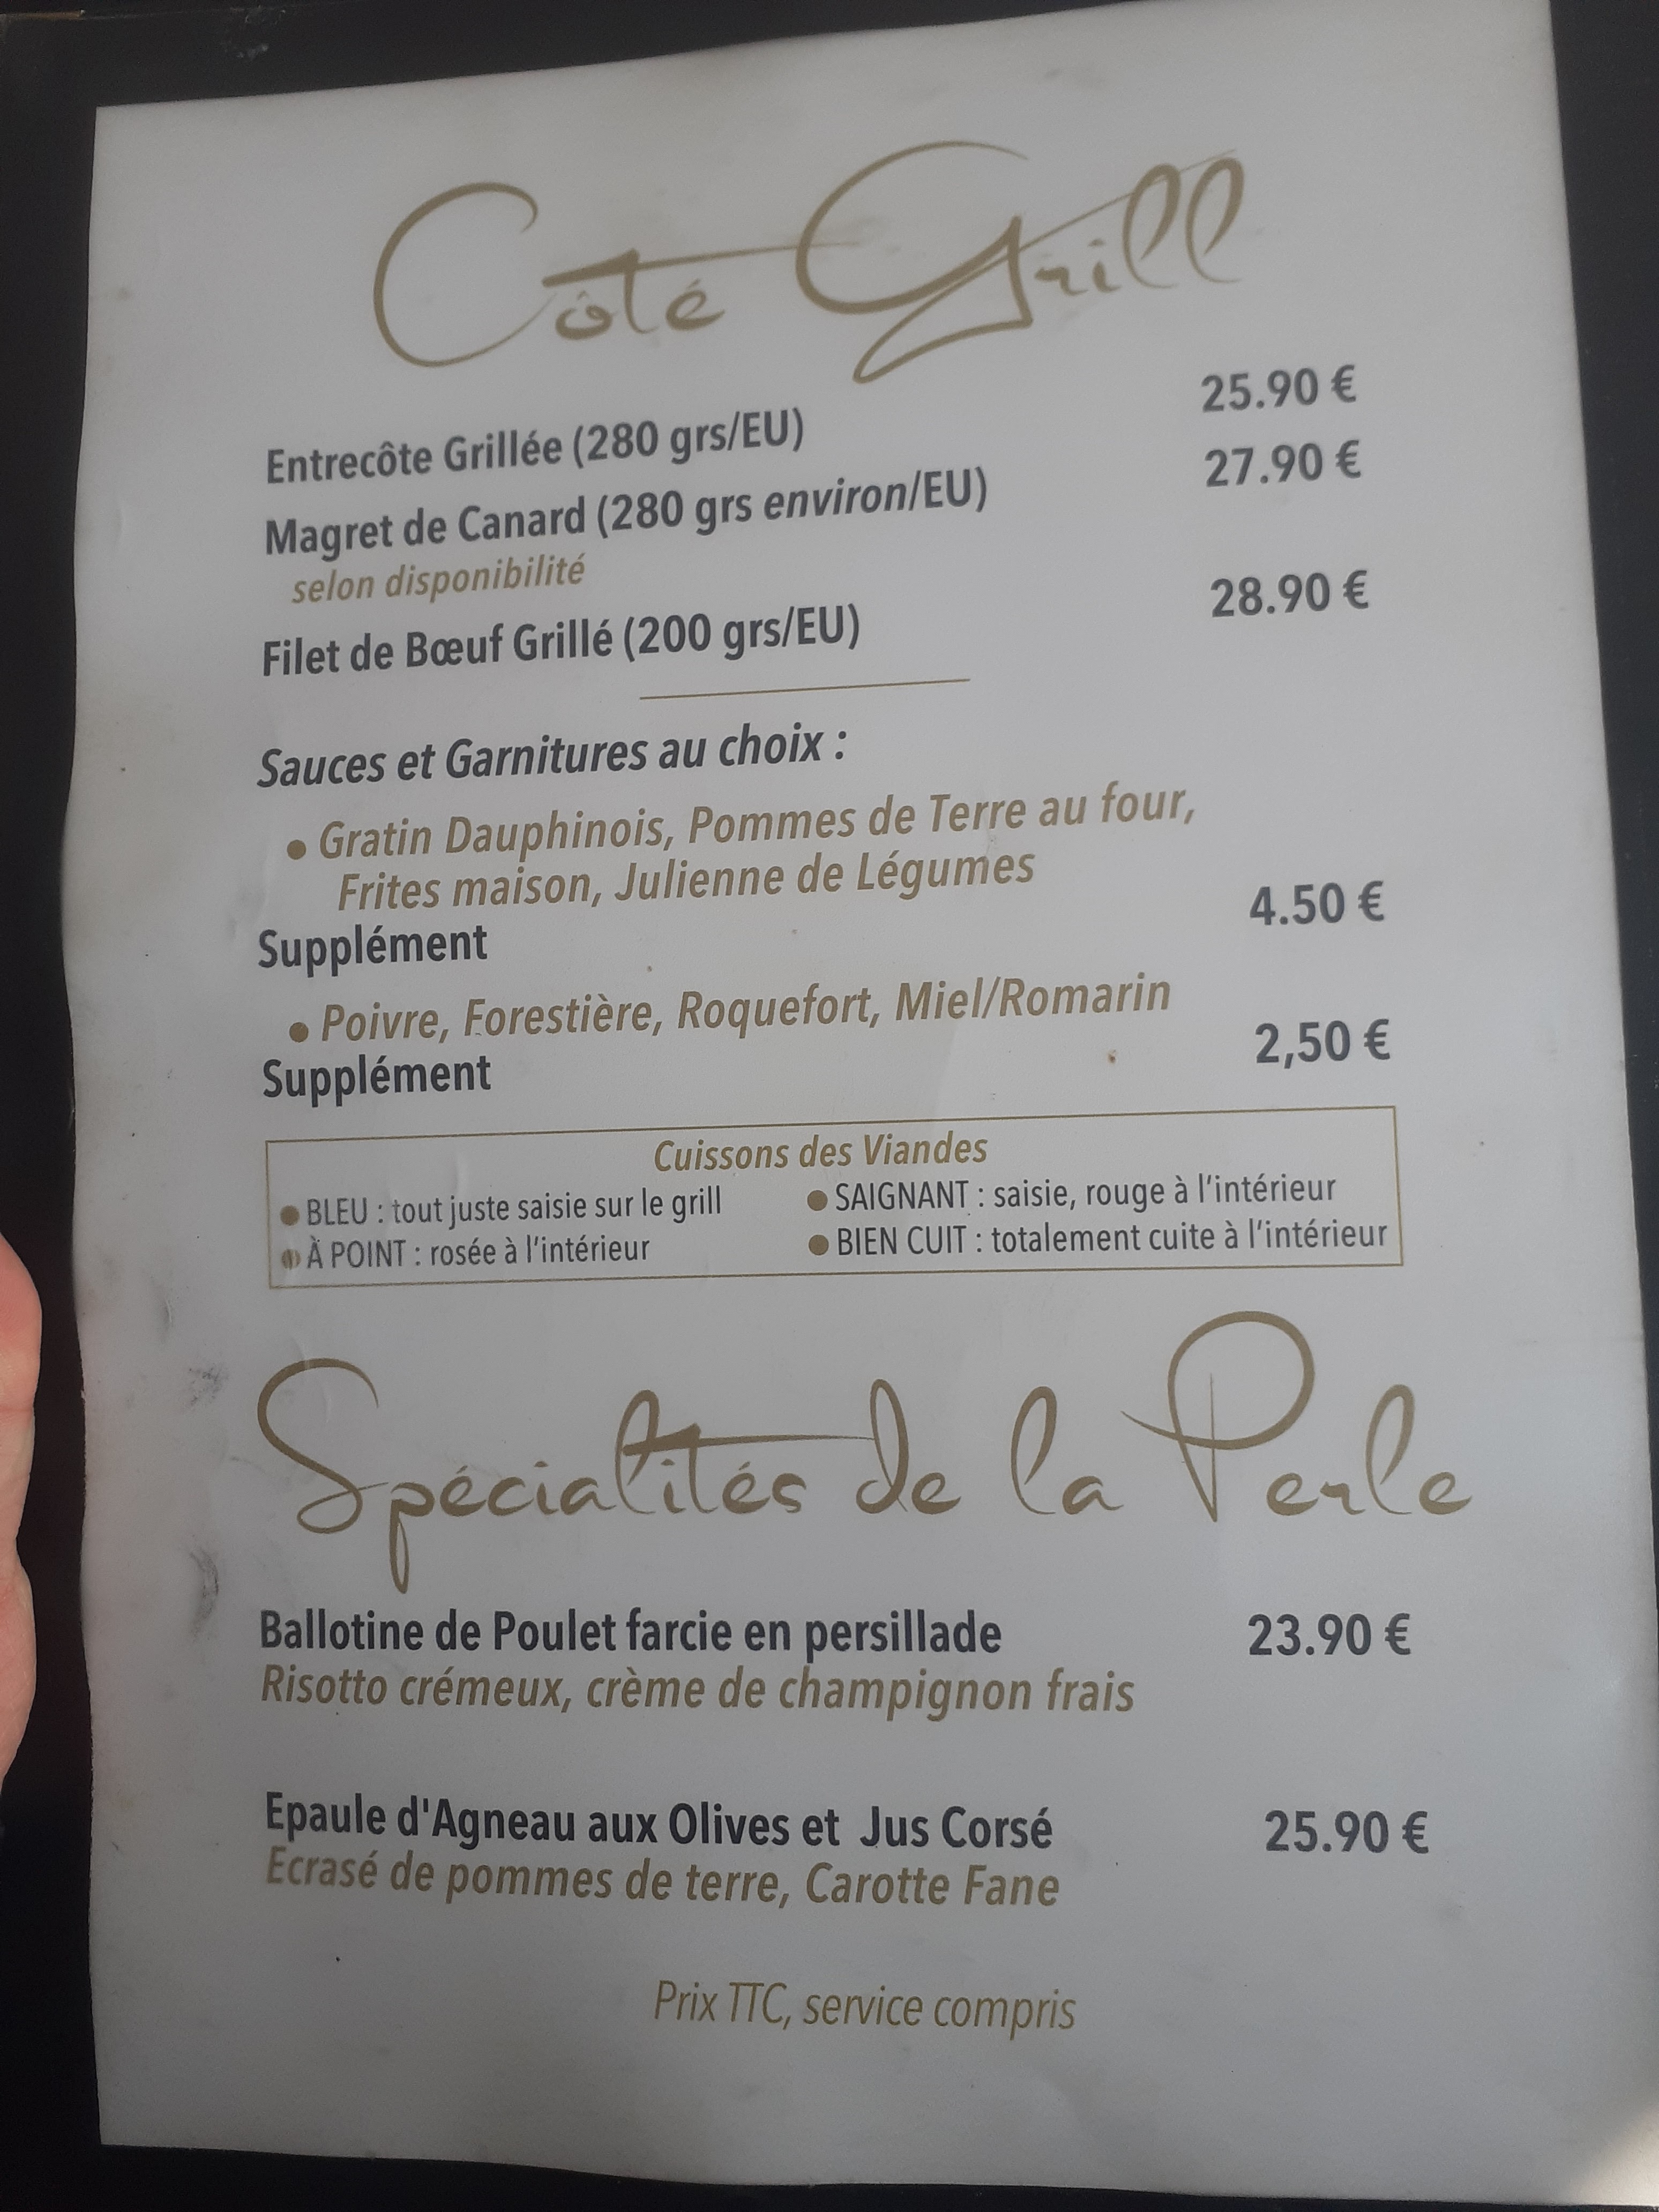 Côté Grill
Entrecôte Grillée (280 grs/EU) 25.90 €
Magret de Canard (280 grs environ/EU) 27.90 €
selon disponibilité
Filet de Bœuf Grillé (200 grs/EU) 28.90 €
Sauces et Garnitures au choix :
• Gratin Dauphinois, Pommes de Terre au four,
Frites maison, Julienne de Légumes
Supplément 4.50 €
• Poivre, Forestière, Roquefort, Miel/Romarin
Supplément 2,50 €
Cuissons des Viandes
• BLEU : tout juste saisie sur le grill • SAIGNANT : saisie, rouge à l'intérieur
• À POINT : rosée à l'intérieur • BIEN CUIT : totalement cuite à l'intérieur
Spécialités de la Perle
Ballotine de Poulet farcie en persillade 23.90 €
Risotto crémeux, crème de champignon frais
Epaule d'Agneau aux Olives et Jus Corsé 25.90 €
Ecrasé de pommes de terre, Carotte Fane
Prix TTC, service compris